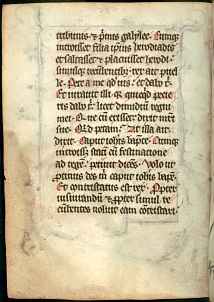 tribunis & p̃mis galylee. Cumq;
introisset filia ip̃ius herodiadis
et saltasset & placuisset herodi.
simulq; recũbentib; rex ait puel
le. Pete a me qd vis. et dabo t̃.
Et iuravit illi. q̃ quicq̃d pecie
ris dabo t̃. licet dimidiũ regni
mei. Que cũ exisset. dixit mr̃i
sue. Qd petam. At illa ait.
dixit. Caput ioh̃is bapt̃e. Cumq;
introiss; stati cũ festinatione
ad regẽ. petivit dicẽs. Volo ut
protinus des m̃ caput ioh̃is bapt̃.
Et contristatus est rex. Propter
iusiurandũ & propter simul re
cũbentes noluit eam cõtristari.